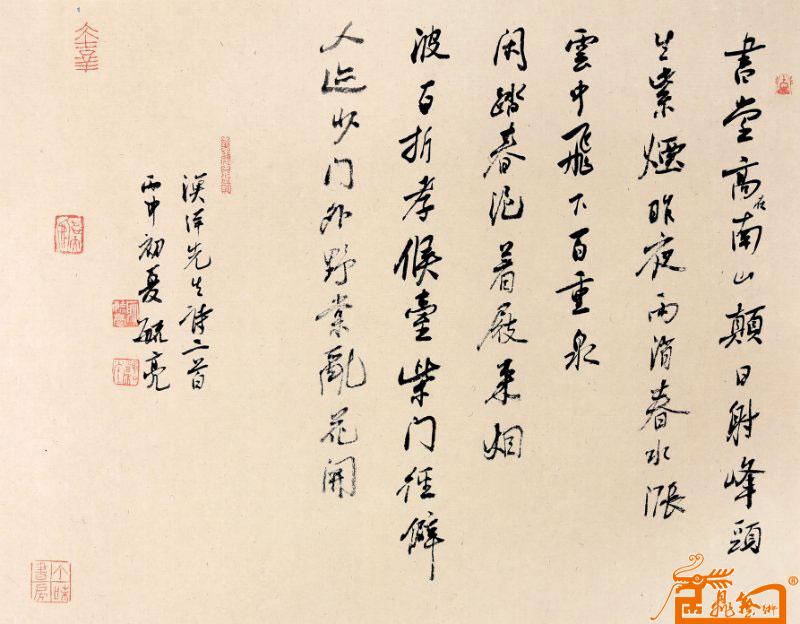 書堂高在南山顛日射峰頭
生紫煙昨夜雨滴春水漲
雲中飛下百重泉
閑踏春泥着屐来烟
波百折孝侯臺柴门徑僻
人迹少门外野棠亂花開
漢洋先生詩二首
丙申初夏毓亮